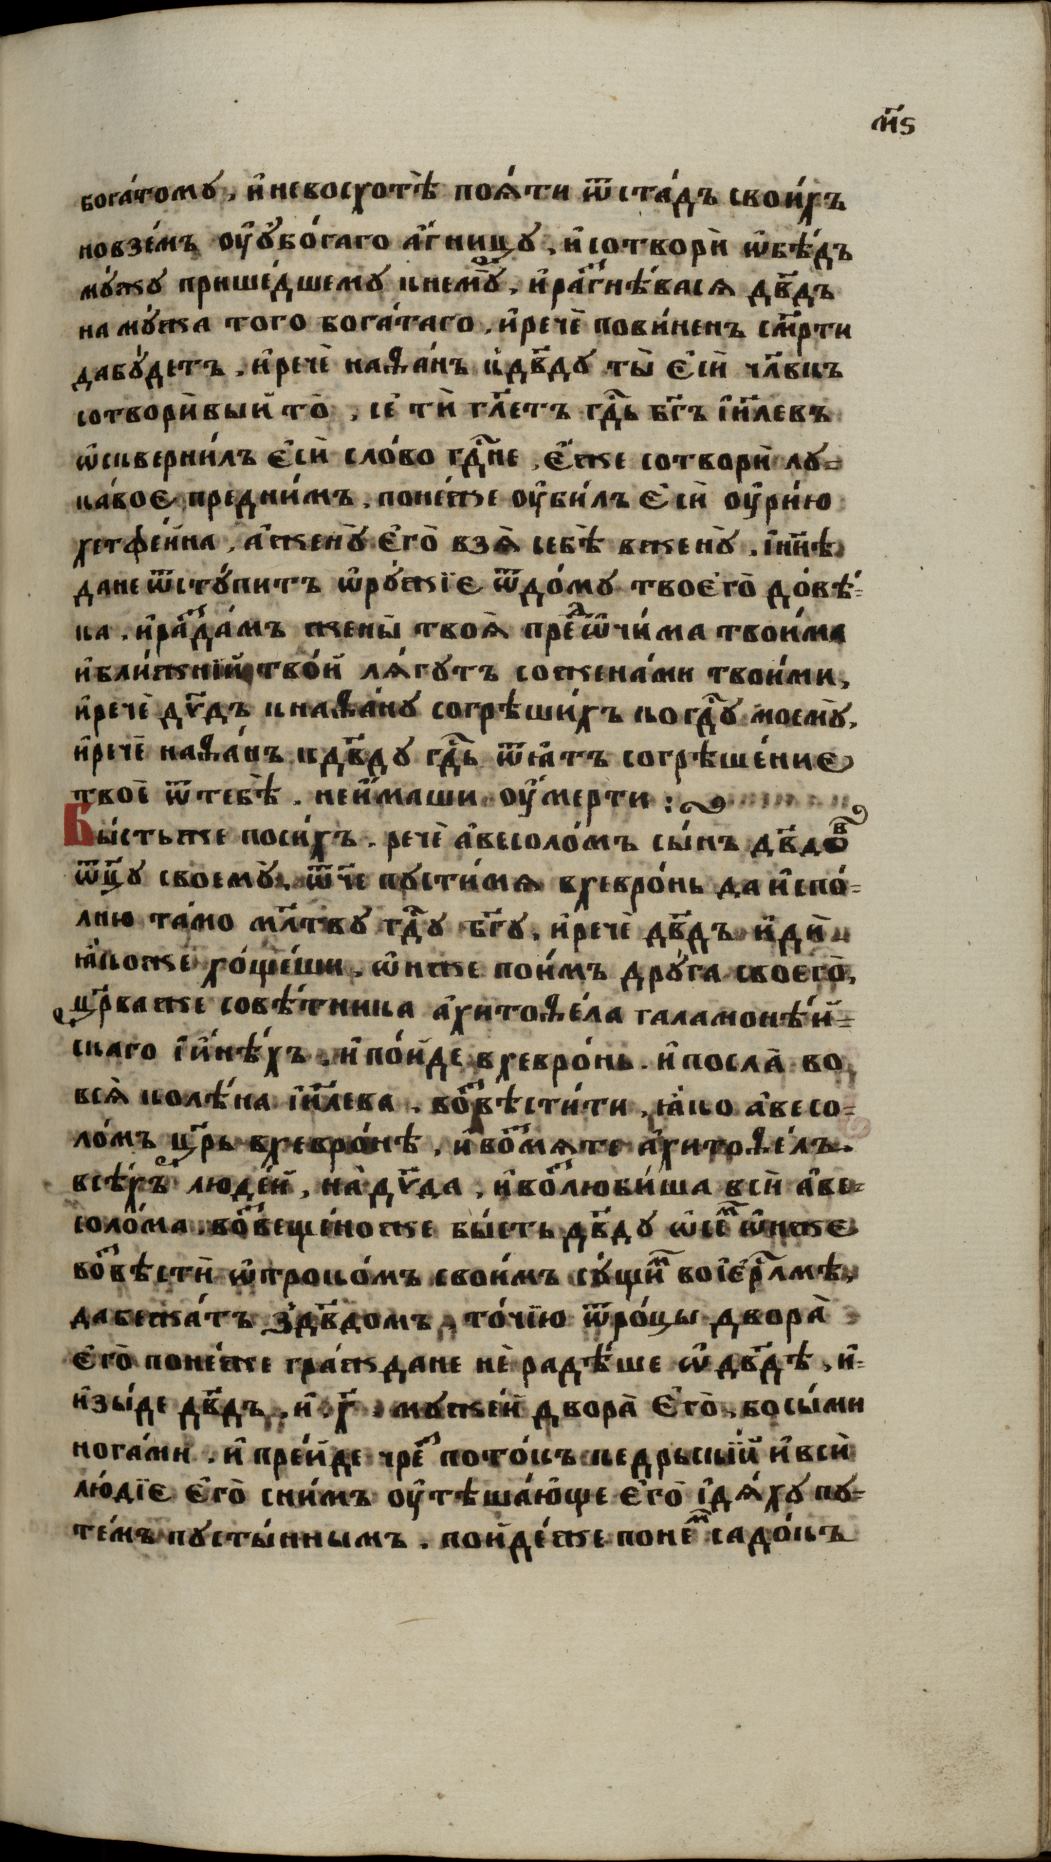 м҃ѕ
бога́тому, и҆ невосхотѣ̀ поѧ́ти ѿ ста́дъ свои́хъ
но взе́мъ оу҆ ꙋ҆бо́гаго а҆́гницу, и҆ сотворѝ ѡ҆бѣ́дъ
му́жу прише́дшему к немꙋ̀, и҆ раⷥгнѣ́васѧ дв҃дъ
на му́жа того бога́таго, и҆ речѐ пови́ненъ см҃рти
да бу́детъ. и҆ речѐ наѳа́нъ к дв҃ду ты̀ є҆сѝ чл҃вкъ
сотвори́вый то̀, се́ ти гл҃етъ гдⷭ҇ь бг҃ъ і҆и҃левъ
ѡ҆скверни́лъ є҆сѝ сло́во гдⷭ҇не, є҆́же сотворѝ лу-
ка́вое пред ни́мъ, поне́же оу҆би́лъ є҆сѝ оу҆рі́ю
хетфе́йна, а҆ жену̀ є҆го̀ взѧ̀ себѣ̀ в жену̀. і҆ нн҃ѣ
да не ѿсту́питъ ѡ҆ру́жїе ѿ до́му твоегѡ̀ до вѣ́-
ка. и҆ раⷥда́мъ жены̀ твоѧ̀ преⷣ ѡ҆чи́ма твои́ма
и҆ бли́жнїй тво́й лѧ́гутъ со жена́ми твои́ми,
и҆ речѐ дв҃дъ к наѳа́ну согрѣши́хъ ко гдⷭ҇у моему̀,
и҆ речѐ наѳа́нъ к дв҃ду гдⷭ҇ь ѿѧ́тъ согрѣше́ние
твоѐ ѿ тебѣ̀. не и҆́маши оу҆мерти :~
Бы́сть же по си́хъ. речѐ а҆весоло́мъ сы́нъ дв҃доⷡ
ѿц҃у своему̀, ѿч҃е пусти́ мѧ в хевро́нь да и҆спо́-
лню та́мо мл҃тву гдⷭ҇у бг҃у, и҆ речѐ дв҃дъ и҆дѝ
ꙗ҆́коже хо́щеши. ѡ҆н же пои́мъ дру́га своего̀,
цр҃ва же совѣ́тника а҆хитоѳе́ла галамонѣ́й-
скаго і҆ и҆нѣ́хъ. и҆ по́йде в хевро́нь. и҆ посла̀ во
всѧ̀ колѣ́на і҆и҃лева. воⷥвѣсти́ти, ꙗ҆́ко а҆весо-
ло́мъ цр҃ь в хевро́нѣ, и҆ воⷥмѧте а҆хитоѳе́лъ
всѣ́хъ люде́й, на дв҃да, и҆ воⷥлюби́ша всѝ а҆ве-
соло́ма. воⷥвеще́но же бы́сть дв҃ду ѡ҆ сеⷨ ѡ҆н же
воⷥвѣстѝ ѡ҆трокѡ́мъ свои́мъ су́щиⷨ во і҆ерⷭ҇лмѣ,
да бежа́тъ з дв҃домъ, то́чїю ѿроцы двора̀
є҆го̀ поне́же гра́ждане не радѣ́ше ѡ҆ дв҃дѣ, и҆-
и҆зы́де дв҃дъ. и҆ .х҃. муже́й двора̀ є҆го̀, босы́ми
нога́ми. и҆ пре́йде чреⷥ пото́къ кедрьскїй и҆ всѝ
лю́дїе є҆го̀ с ни́мъ оу҆тѣша́юще є҆го̀ і҆дѧ́ху пу-
те́мъ пусты́нным. пойде́ же по неⷨ садо́къ